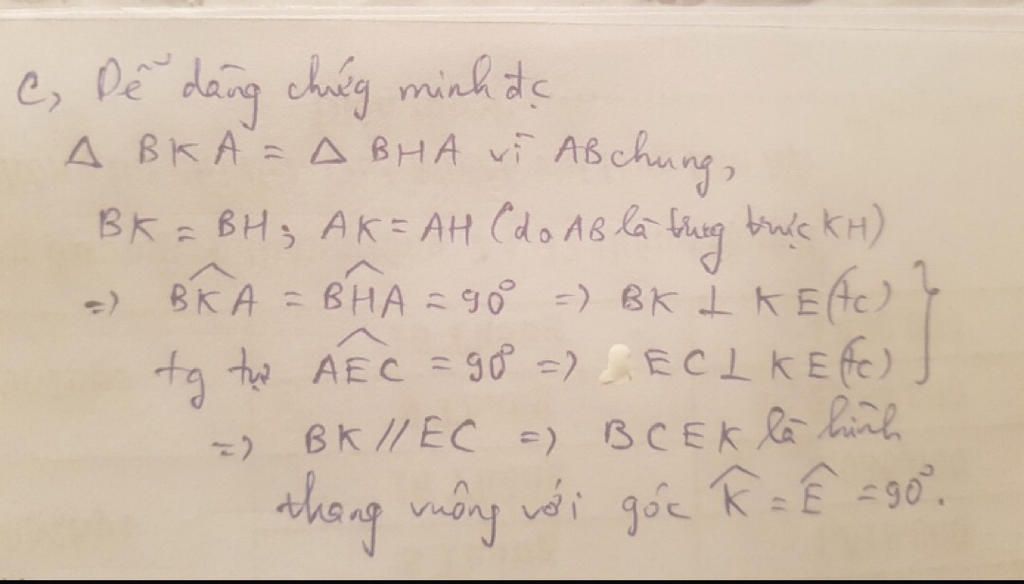 c, Dễ dàng chứg minh đc
Δ BKA = Δ BHA vì AB chung,
BK = BH; AK = AH (do AB là trug trực KH)
=> \widehat{BKA} = \widehat{BHA} = 90° => BK ⊥ KE (tc)
tg tự \widehat{AEC} = 90° => EC ⊥ KE (tc)
=> BK // EC => BCEK là hình
thang vuông với góc \widehat{K} = \widehat{E} = 90°.